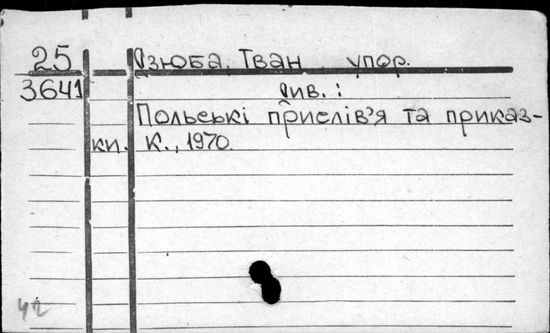 25 Дзюба, Іван упор.
3641 Див.:
Польські прислів'я та приказ-
ки. К., 1970.
42